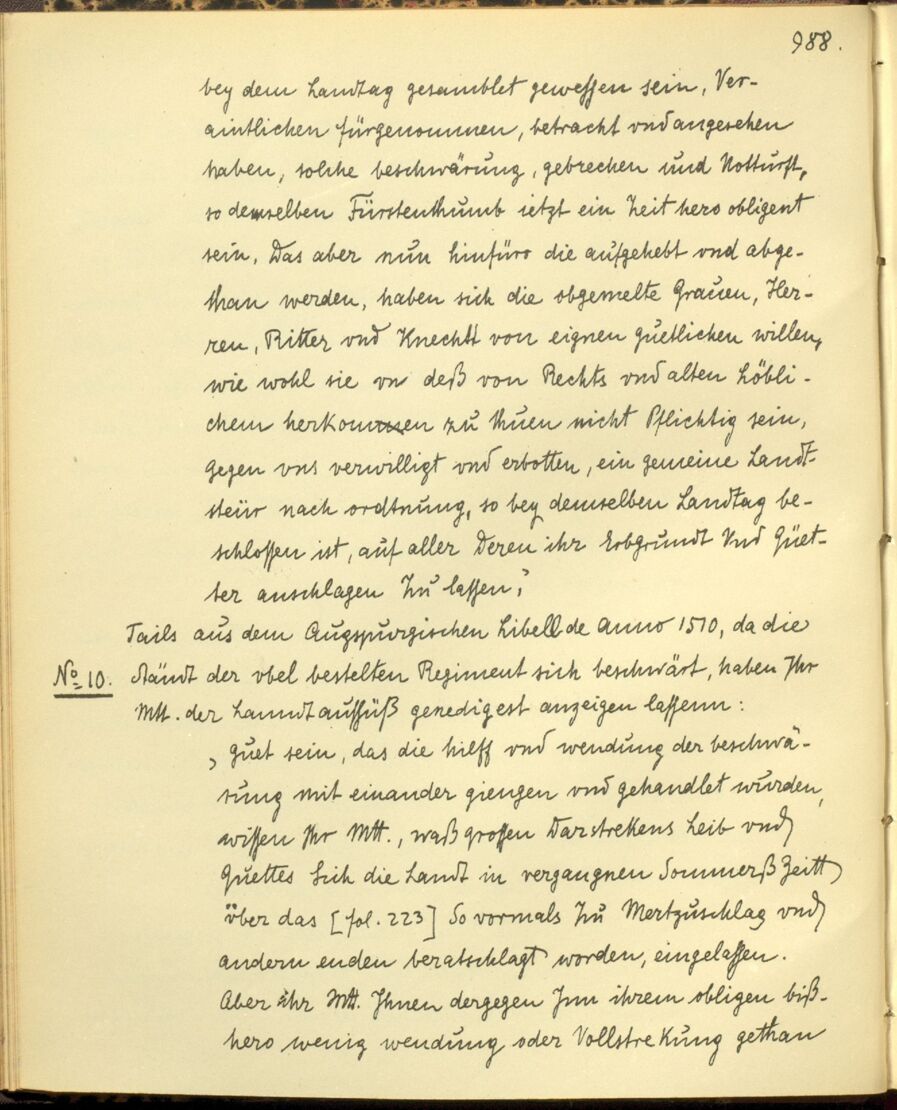 988.
bey dem Landtag gesamblet gewessen sein, Ver-
aintlichen fürgenommen, betracht vnd angesehen
haben, solche beschwärung, gebrechen und Notturft,
so demselben Fürstenthumb ietzt ein Zeit hero obligent
sein. Das aber nun hinfüro die aufgehebt vnd abge-
than werden, haben sich die obgemelte Grauen, Her-
ren, Ritter vnd Knechtt von eignen guetlichen willen,
wie wohl sie vn deß von Rechts vnd alten Löbli-
chem herkommen zu thuen nicht Pflichtig sein,
gegen vns verwilligt vnd erbotten, ein gemeine Landt-
steür nach ordtnung, so bey demselben Landtag be-
schlossen ist, auf aller Deren ihr Erbgrundt Vnd Güet-
ter anschlagen Zu lassen,"
Tails aus dem Augspurgischen Libell de Anno 1510, da die
No 10. Ständt der vbel bestelten Regiment sich beschwärt, haben Ihr
Mtt. der Lanndt aussüß genedigest anzeigen lassenn:
„Guet sein, das die hilff vnd wendung der beschwä-
rung mit einander giengen vnd gehandlet wurden,
wissen Ihr Mtt., waß grossen Darstrekens Leib vnd
Guettes Sich die Landt in vergangnen Sommerß Zeitt
über das [fol. 223] So vormals Zu Mertzuschlag vnd
andern enden beratschlagt worden, eingelassen.
Aber ihr Mtt. Ihnen dergegen Jnn ihrem obligen biß-
hero wenig wendung oder Vollstrekung gethan